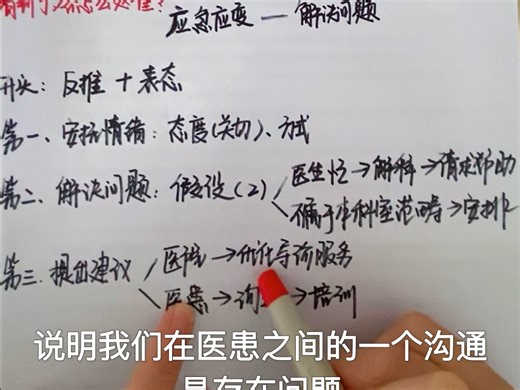 看到了 怎么处理?
应急应变 — 解决问题
开头: 反推 + 表态
第一、安抚情绪: 态度(关切)、方式
第二、解决问题: 假设(2) 医生忙→解释→请求帮助
不属于本科室范畴→安排
第三. 提出建议 医院→优化导诊服务
医患→ →培训
说明我们在医患之间的一个沟通
是存在问题